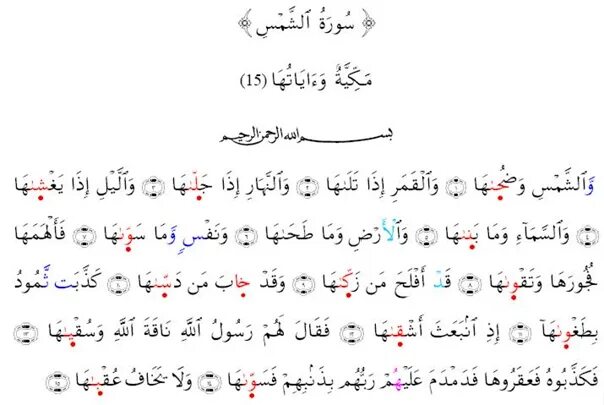 ﴿ سُورَةُ ٱلشَّمْسِ ﴾
مَكِّيَّةٌ وَءَايَاتُهَا (15)
بسم الله الرحمن الرحيم
وَّٱلشَّمْسِ وَضُحَىٰهَا ١ وَٱلْقَمَرِ إِذَا تَلَىٰهَا ٢ وَٱلنَّهَارِ إِذَا جَلَّىٰهَا ٣ وَٱلَّيْلِ إِذَا يَغْشَىٰهَا
٤ وَٱلسَّمَآءِ وَمَا بَنَىٰهَا ٥ وَٱلْأَرْضِ وَمَا طَحَىٰهَا ٦ وَنَفْسٍ وَّمَا سَوَّىٰهَا ٧ فَأَلْهَمَهَا
فُجُورَهَا وَتَقْوَىٰهَا ٨ قَدْ أَفْلَحَ مَن زَكَّىٰهَا ٩ وَقَدْ خَابَ مَن دَسَّىٰهَا ١٠ كَذَّبَت ثَّمُودُ
بِطَغْوَىٰهَآ ١١ إِذِ ٱنۢبَعَثَ أَشْقَىٰهَا ١٢ فَقَالَ لَهُمْ رَسُولُ ٱللَّهِ نَاقَةَ ٱللَّهِ وَسُقْيَىٰهَا ١٣
فَكَذَّبُوهُ فَعَقَرُوهَا فَدَمْدَمَ عَلَيْهُمْ رَبُّهُم بِذَنۢبِهِمْ فَسَوَّىٰهَا ١٤ وَلَا يَخَافُ عُقْبَىٰهَا ١٥